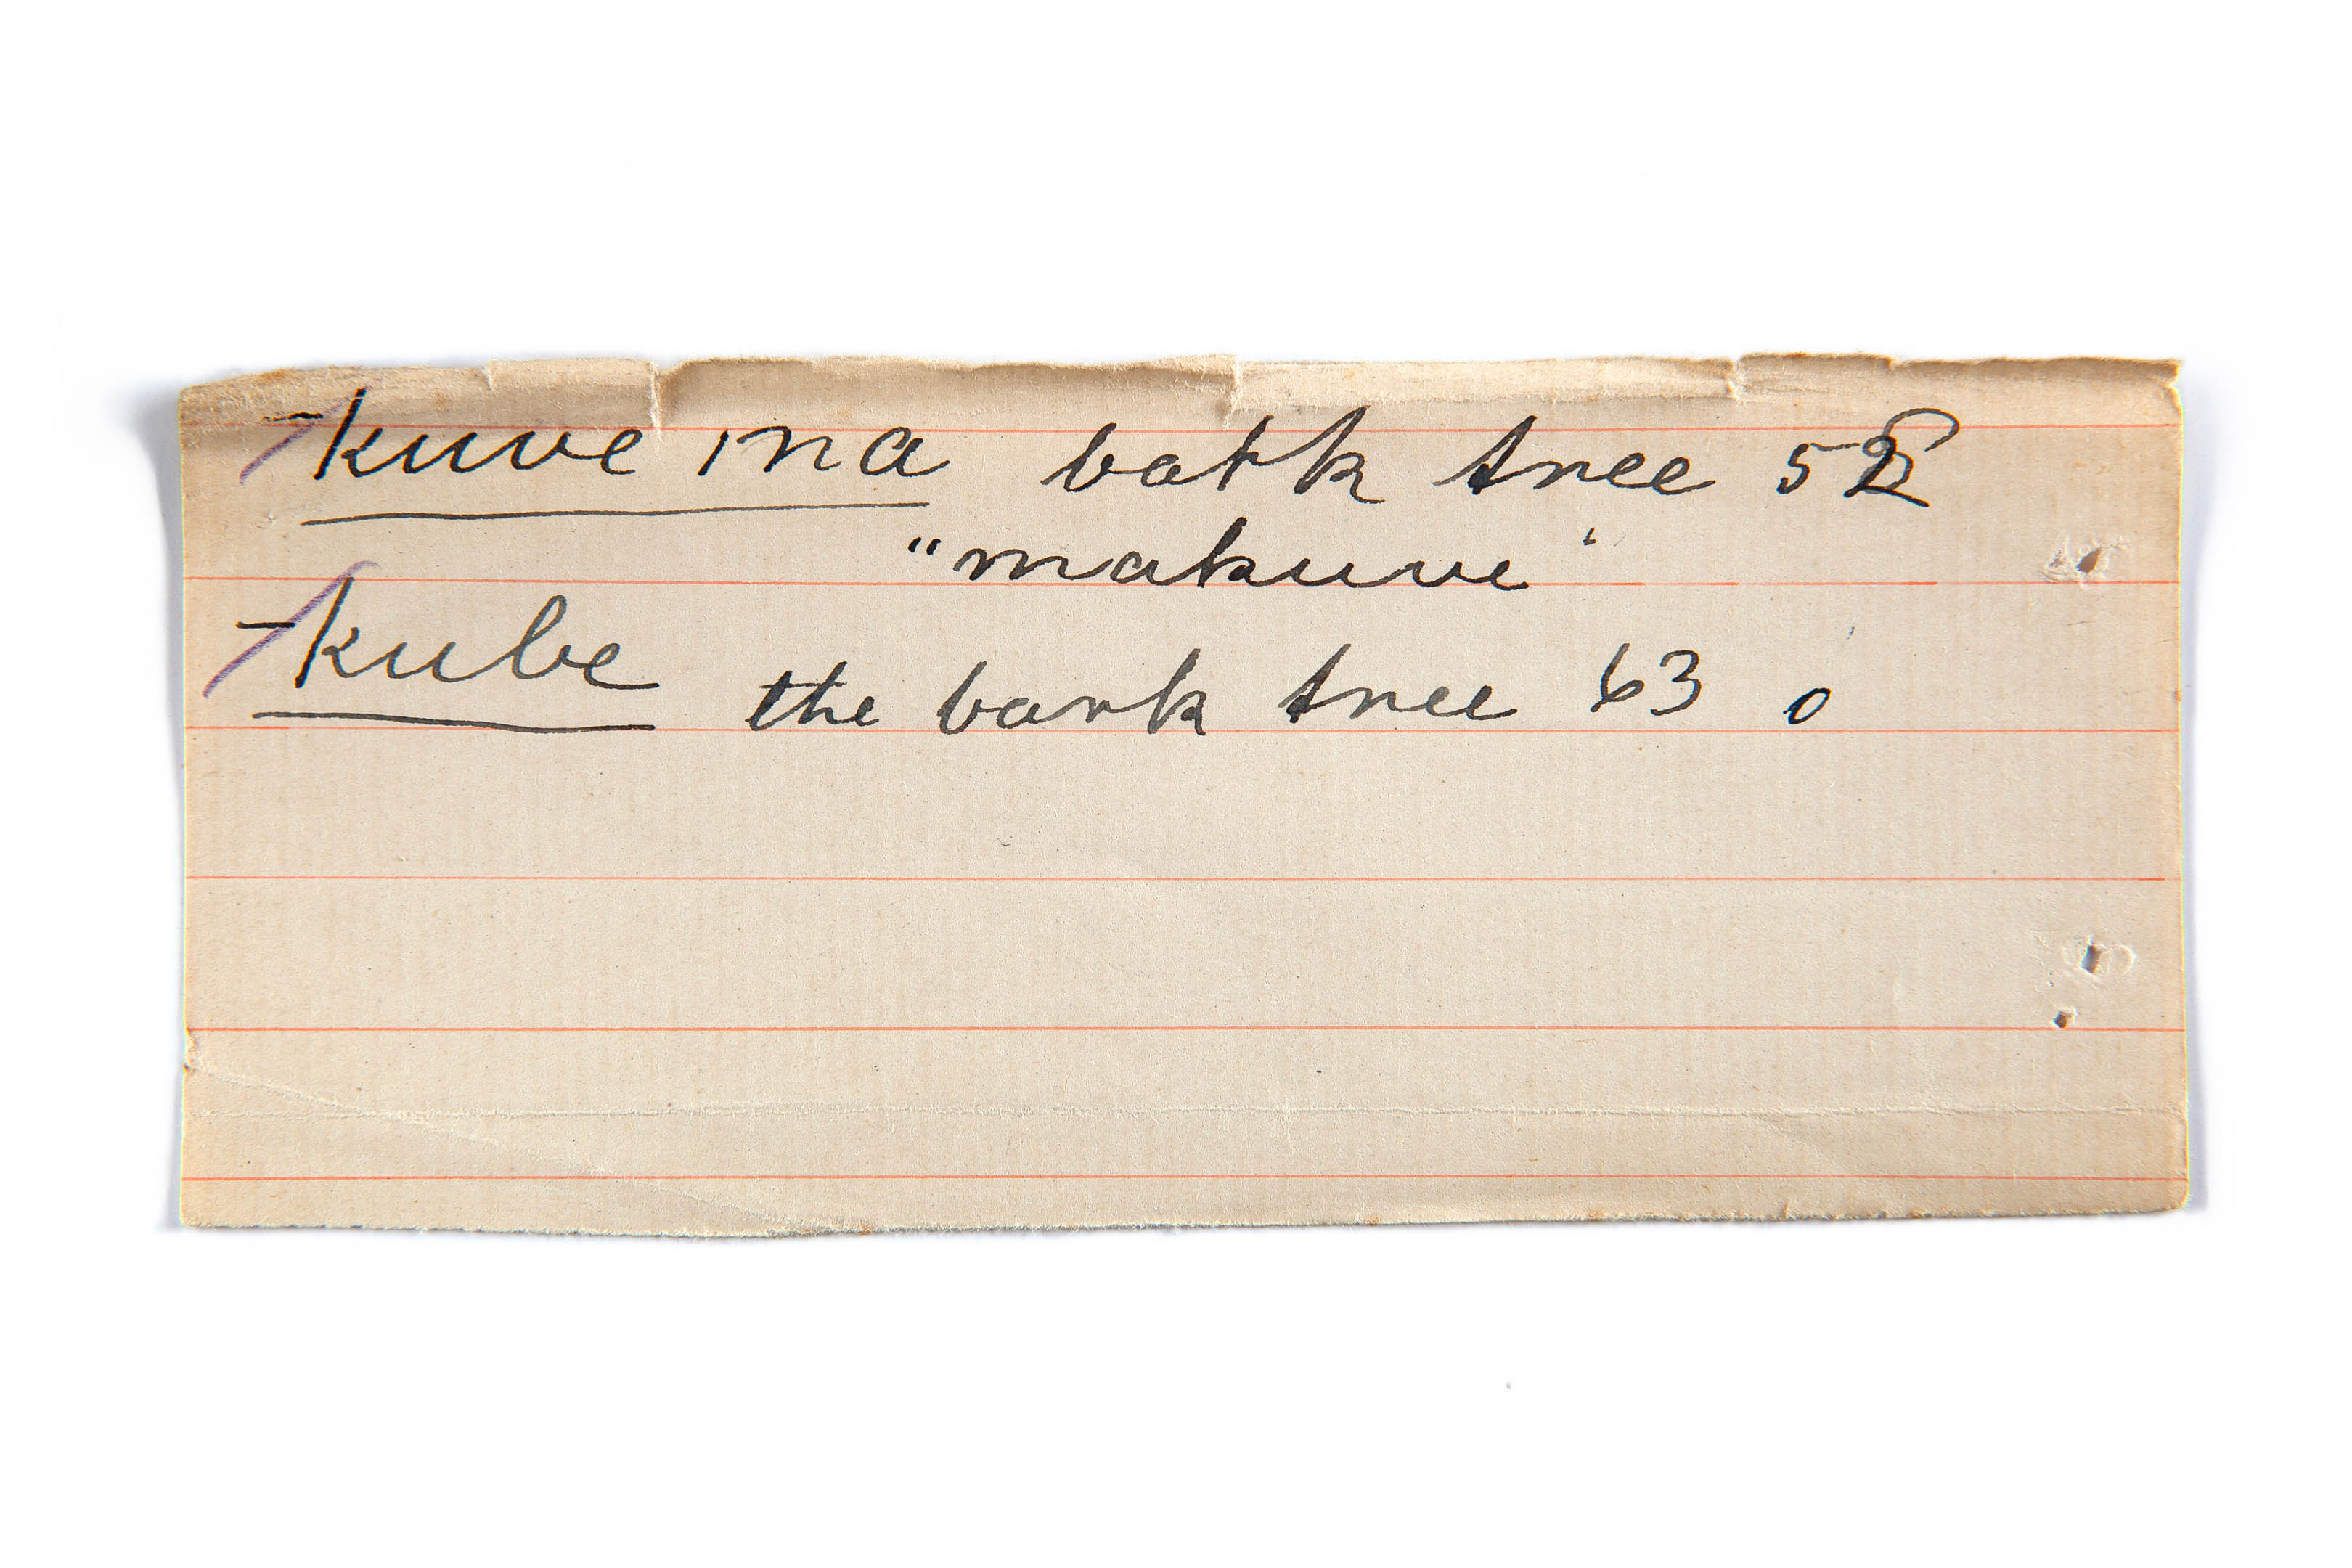 -kuve ina bark tree 52
"makuve"
-kube the bark tree 63 o